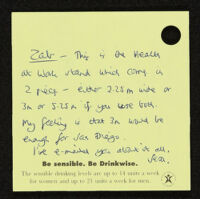 Zab - This is the Health
at Work stand which comes in
2 pieces - either 2.25m wide or
3m or 5.25m if you use both.
My feeling is that 3m would be
enough for San Diego.
I've e-mailed you about it all,
Be sensible. Be Drinkwise.
The sensible drinking levels are up to 14 units a week
for women and up to 21 units a week for men.